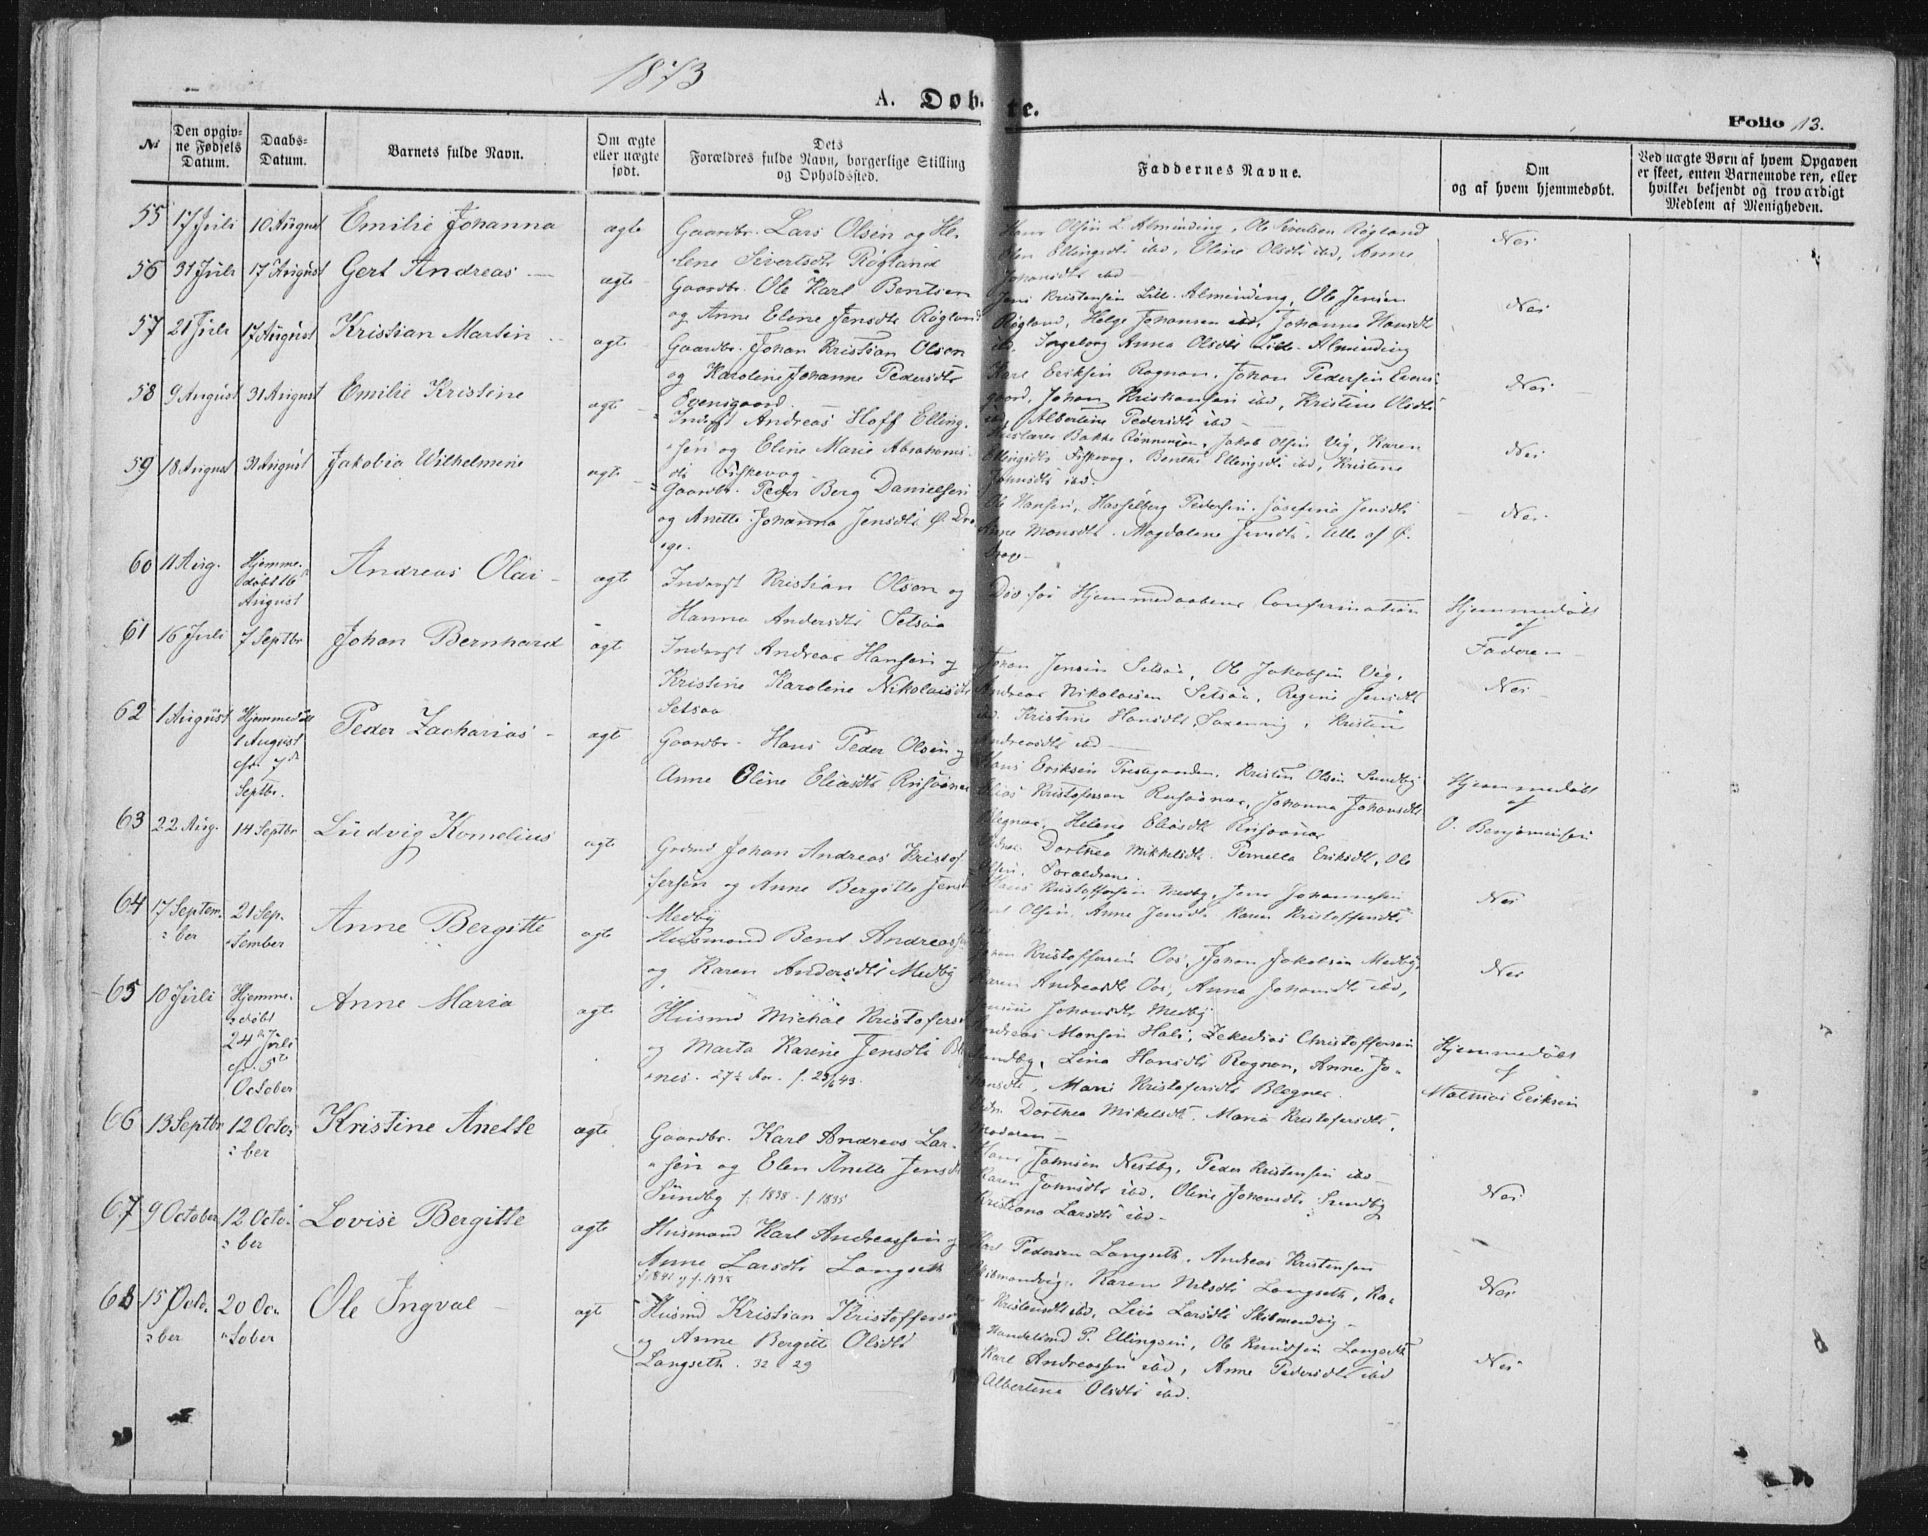 1873
A. Døb-
te.
Folio 13.
No
Den opgiv-
ne Fødsels
Datum.
Daabs-
Datum.
Barnets fulde Navn.
Om ægte
eller uægte
født.
Dets
Forældres fulde Navn, borgerlige Stilling
og Opholdssted.
Faddernes Navne.
Om
og af hvem hjemmedøbt.
Ved uægte Børn af hvem Opgaven
er skeet, enten Barnemoderen, eller
hvilket bekjendt og troværdigt
Medlem af Menigheden.
55 17 Juli 10 August Emilie Johanna ægte Gaardbr. Lars Olsen og He-
lene Sivertsdt Røgland
Hans Olsen L. Almending, Ole Sivertsen Røgland
Elen Ellingsdt ibd, Oline Olsdt ibd, Anne
Johansdt ibd
Nei
56 31 Juli 17 August Gert Andreas ægte Gaardbr. Ole Karl Bentsen
og Anne Elene Jensdt Røgland
Jens Kristensen Lille-Almending, Ole Jensen
Røgland, Helge Johansen ibd, Johanna Hansdt
ibd. Ingeborg Anna Olsdt Lille-Almending
Nei
57 21 Juli 17 August Kristian Martin ægte Gaardbr. Johan Kristian Olsen
og Karoline Johanne Pedersdt
Evensgaard.
Karl Eriksen Rognan, Johan Pedersen Evens-
gaard, Johan Kristiansen ibd, Kristine Olsdt
ibd, Albertine Pedersdt ibd
Nei
58 9 August 31 August Emilie Kristine ægte Inderst Andreas Hoff Elling-
sen og Eline Marie Abrahams-
dt Fiskevaag
Jakob Olsen Vig, Karen
Ellingsdt Fiskevaag, Benthe Ellingsdt ibd, Kristine
Johnsdt ibd.
Nei
59 18 August 31 August Jakobia Wilhelmine ægte Gaardbr. Peder Berg Danielsen
og Anette Johanna Jensdt Ø. Dra-
ege.
Ole Hansen, Hasselberg Pedersen, Josefine Jensdt
Anne Monsdt. Magdalene Jensdt. Alle af Ø.
Drage
Nei
60 11 Aug. Hjemme-
døbt 16
August
Andreas Olai ægte Inderst Kristian Olsen og
Hanna Andersdt Setsaa
Død før Hjemmedaabens Confirmation
Hjemmedøbt
af
Faderen
61 16 Juli 7 Septbr Johan Bernhard ægte Inderst Andreas Hansen og
Kristine Karoline Nikolaisdt
Setsaa
Johan Jensen Setsaa, Ole Jakobsen Vig,
Andreas Nikolaisen Setsaa, Regine Jensdt
ibd. Kristine Hansdt Saxenvig, Kristine
Andreasdt ibd
Nei
62 1 August Hjemmedøbt
1 August
cfr. 7de
Septbr.
Peder Zacharias ægte Gaardbr. Hans Peder Olsen og
Anne Oline Eliasdt
Hans Eriksen Prestegaarden, Kristen Olsen Sundby
Elias Kristofersen, Johanna Johansdt
Blegnæs, Helena Eliasdt
Hjemmedøbt
af
O. Benjaminsen
63 22 Aug. 14 Septbr Ludvig Kornelius ægte Johan Andreas Kristof-
fersen og Anne Bergitte Jensdt
Medby
Dorthea Mikkelsdt. Pernella Eriksdt, Ole
Olsen. Forældrene.
Hans Kristoffersen Medby, Jens Johannesen
Olsen, Anne Jensdt Karen Kristoffersdt
Nei
64 17 Septem-
ber
21 Sep-
tember
Anne Bergitte ægte Husmand Bent Andreassen
og Karen Andersdt Medby
Johan Kristoffersen Oos, Johan Jakobsen Medby,
Karen Andreasdt Oos, Anna Johansdt ibd,
Johansdt Medby
Nei
65 10 Juli Hjemme-
døbt
24 Juli
cfr. 5te
October
Anne Maria ægte Husmd Michal Kristofersen
og Marta Karine Jensdt Bleg-
nes. 27½ Aar. f. 23/6 43.
Andreas Monsen Hals, Zekedias Christoffersen
Sundby, Lina Hansdt Rognan, Anne Jo-
hansdt, Marie Kristofersdt Blegnes.
Dorthea Mikelsdt. Maria Kristofersdt,
Moderen
Hjemmedøbt
af
Mathias Eriksen
66 13 Septbr 12 Octo-
ber
Kristine Anette ægte Gaardbr. Karl Andreas Lar-
sen og Elen Anette Jensdt
Sundby f. 1838 - f. 1835
Hans Johnsen Nestby, Peder Kristensen ibd
Karen Johnsdt ibd, Oline Johansdt Sundby
Kristiana Larsdt ibd
Nei
67 9 October 12 Octo-
ber
Lovise Bergitte ægte Husmand Karl Andreassen og
Anne Larsdt Langseth
f. 1840 og f. 1838
Karl Pedersen Langseth, Andreas Kristensen
Skibmandvig, Karen Nilsdt Langseth, Ka-
ren Kristensdt ibd, Lina Larsdt Skibmandvig
Nei
68 15 Octo-
ber
20 Oc-
tober
Ole Ingval ægte Husmd Kristian Kristoffersen
og Anne Bergitte Olsdt
Langseth. 32 29
Handelsmd P. Ellingsen, Ole Knudsen Langseth
Karl Andreassen ibd, Anne Pedersdt ibd
Albertina Olsdt ibd.
Nei